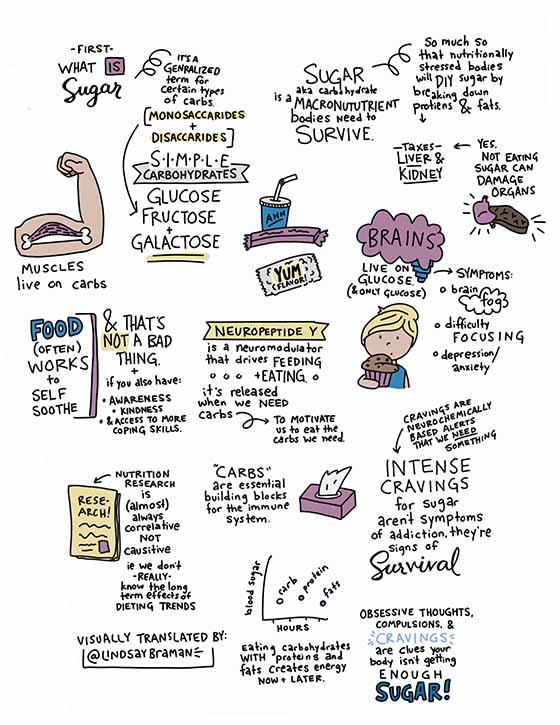 -FIRST-
WHAT IS
Sugar
IT'S A
GENRALIZED
term for
certain types
of carbs.
[MONOSACCARIDES
+
DISACCARIDES]
S·I·M·P·L·E
CARBOHYDRATES
GLUCOSE
FRUCTOSE
+
GALACTOSE
SUGAR
aka carbohydrate
is a MACRONUTUTRIENT
bodies need to
SURVIVE.
So much so
that nutritionally
stressed bodies
will DIY sugar by
breaking down
protiens & fats.
YES.
NOT EATING
SUGAR CAN
DAMAGE
ORGANS
-TAXES-
LIVER &
KIDNEY
MUSCLES
live on carbs
AHH
YUM
(FLAVOR)
BRAINS
LIVE ON
GLUCOSE.
(& ONLY GLUCOSE)
SYMPTOMS:
brain
fog
difficulty
FOCUSING
depression/
anxiety
FOOD
(OFTEN)
WORKS
to
SELF
SOOTHE
& THAT'S
NOT A BAD
THING.
+
if you also have:
• AWARENESS
• KINDNESS
• & ACCESS TO MORE
COPING SKILLS.
NEUROPEPTIDE Y
is a neuromodulator
that drives FEEDING
+EATING.
it's released
when we NEED
carbs
TO MOTIVATE
us to eat the
carbs we need.
CRAVINGS ARE
NEUROCHEMICALLY
BASED ALERTS
THAT WE NEED
SOMETHING
INTENSE
CRAVINGS
for sugar
aren't symptoms
of addiction, they're
signs of
Survival
RESE-
ARCH!
NUTRITION
RESEARCH
is
(almost)
always
correlative
NOT
causitive
ie we don't
-REALLY-
know the long
term effects of
DIETING TRENDS
"CARBS"
are essential
building blocks
for the immune
System.
blood sugar
carb
protein
fats
HOURS
Eating carbohydrates
WITH proteins and
fats creates energy
NOW + LATER.
OBSESSIVE THOUGHTS,
COMPULSIONS, &
CRAVINGS
are clues your
body isn't getting
ENOUGH
SUGAR!
VISUALLY TRANSLATED BY:
@LINDSAYBRAMAN